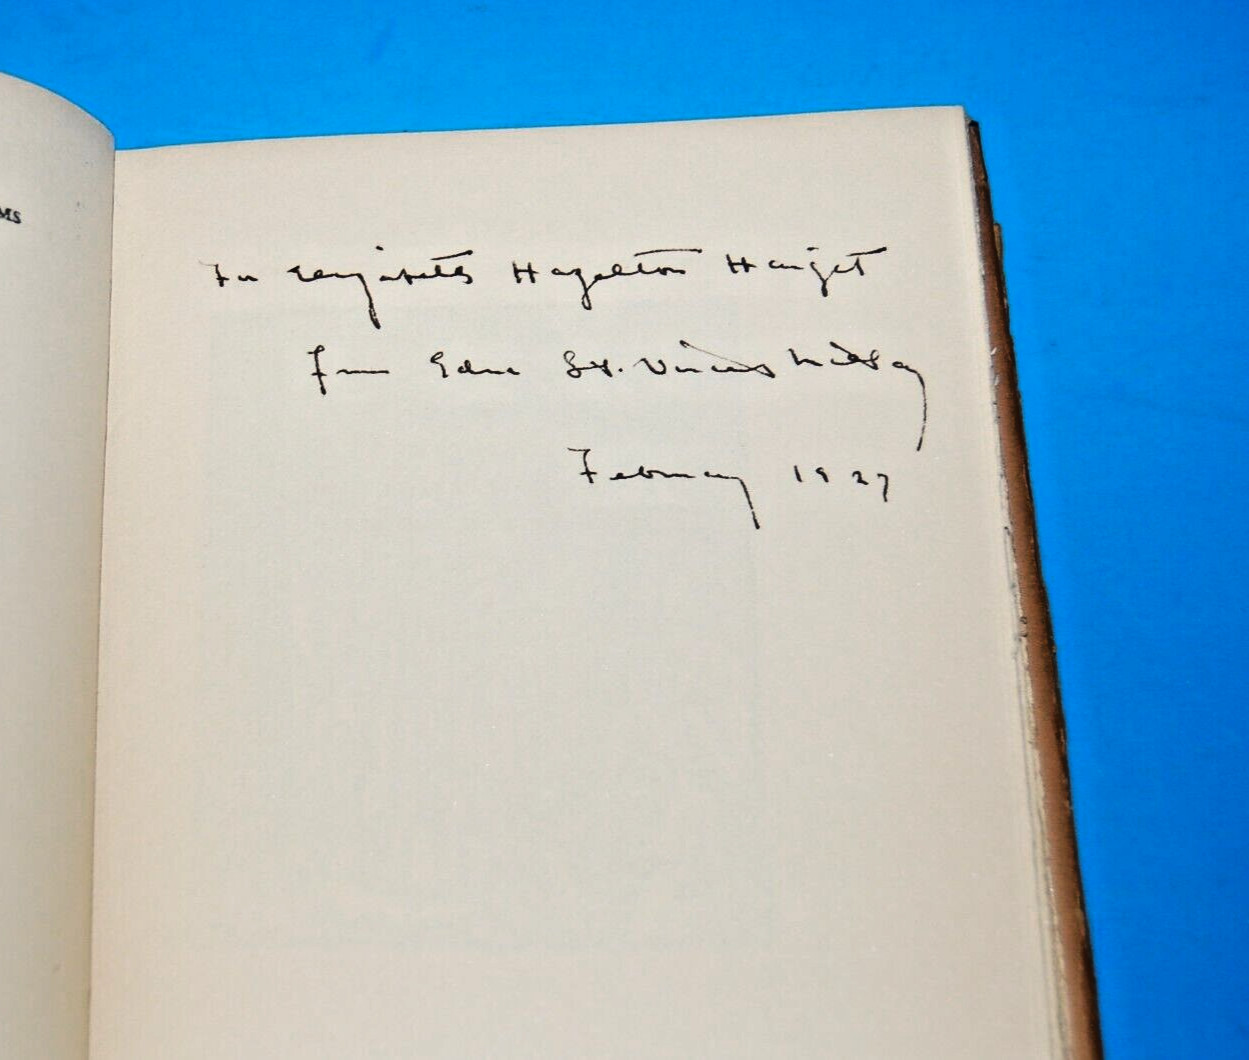 MS
For Elizabeth Hazelton Haight
From Edna St. Vincent Millay
February 1927